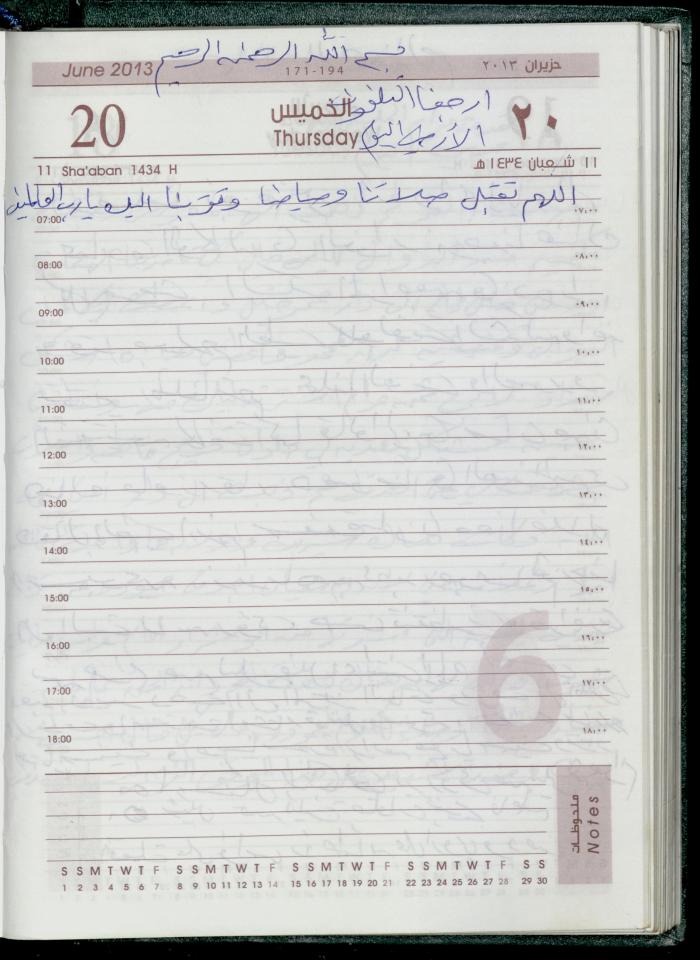 بسم الله الرحمن الرحيم
June 2013
171-194
حزيران ٢٠١٣
20
الخميس
Thursday
٢٠
11 Sha'aban 1434 H
١١ شعبان ١٤٣٤ هـ
اللهم تقبل صلاتنا وصيامنا وقربنا اليك يا رب العالمين
07:00 ٠٧:٠٠
08:00 ٠٨:٠٠
09:00 ٠٩:٠٠
10:00 ١٠:٠٠
11:00 ١١:٠٠
12:00 ١٢:٠٠
13:00 ١٣:٠٠
14:00 ١٤:٠٠
15:00 ١٥:٠٠
16:00 ١٦:٠٠
6
17:00 ١٧:٠٠
18:00 ١٨:٠٠
ملحوظات
Notes
S S M T W T F S S M T W T F S S M T W T F S S M T W T F S S
1 2 3 4 5 6 7 8 9 10 11 12 13 14 15 16 17 18 19 20 21 22 23 24 25 26 27 28 29 30